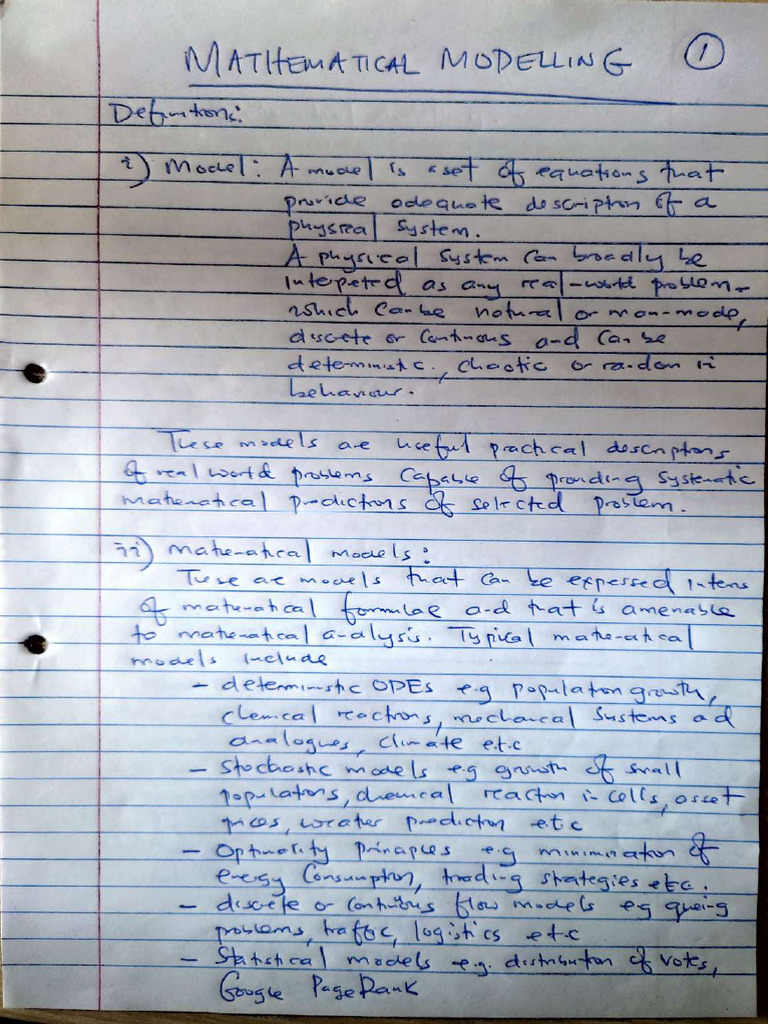 MATHEMATICAL MODELLING 1
Definitions:
i) Model: A model is a set of equations that
provide adequate description of a
physical system.
A physical system can broadly be
interpeted as any real-world problem
which can be natural or man-made,
discrete or continuous and can be
deterministic, chaotic or random in
behaviour.
These models are useful practical descriptions
of real world problems capable of providing systematic
mathematical predictions of selected problem.
ii) mathematical models:
These are models that can be expessed interms
of mathematical formulae and that is amenable
to mathematical analysis. Typical mathematical
models include
- deterministic ODEs e.g population growth,
chemical reactions, mechanical systems ad
analogues, climate e.t.c
- Stochastic models e.g growth of small
populations, chemical reaction in cells, asset
prices, weather prediction e.t.c
- Optimality principles e.g minimization of
energy consumption, trading strategies e.t.c.
- discrete or continuous flow models e.g queing
problems, traffic, logistics e.t.c
- Statistical models e.g. distribution of votes,
Google PageRank